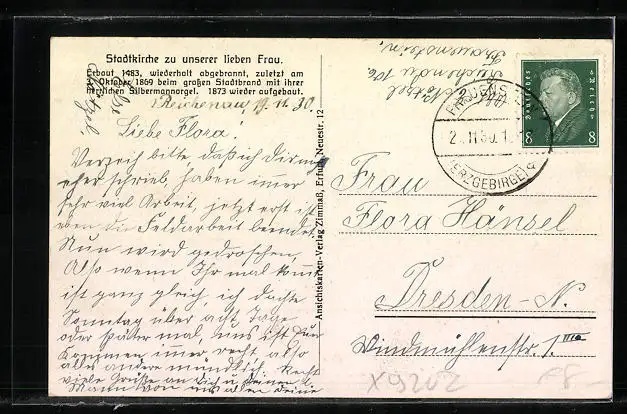 Stadtkirche zu unserer lieben Frau.
Erbaut 1483, wiederholt abgebrannt, zuletzt am
Oktober 1869 beim großen Stadtbrand mit ihrer
herrlichen Silbermannorgel. 1873 wieder aufgebaut.
Reichenau, 9. 11. 30.
Liebe Flora!
Verzeih bitte, daß ich dir nie
eher schrieb, haben imer
sehr viel Arbeit, jetzt erst ist
eben die Feldarbeit beendet.
Nun wird gedroschen.
Also wenn Ihr mal komt
ist ganz gleich, ich dachte
Sonntag über acht Tage
oder später mal, uns ist Euer
Kommen imer recht, also
alles andere mündlich. Recht
viele Grüße an dich u. deinen l.
Mann von uns allen deine
Liebe
Ansichtskarten-Verlag Zimmaß, Erfurt, Neuestr. 12
Reichenau
Frauenstein
FRAUENST
11.30.1
(ERZGEBIRGE)
Deutsches
Reich
8 8
Frau
Flora Hänsel
Dresden-N.
Windmühlenstr. 1 IIIa
X9202